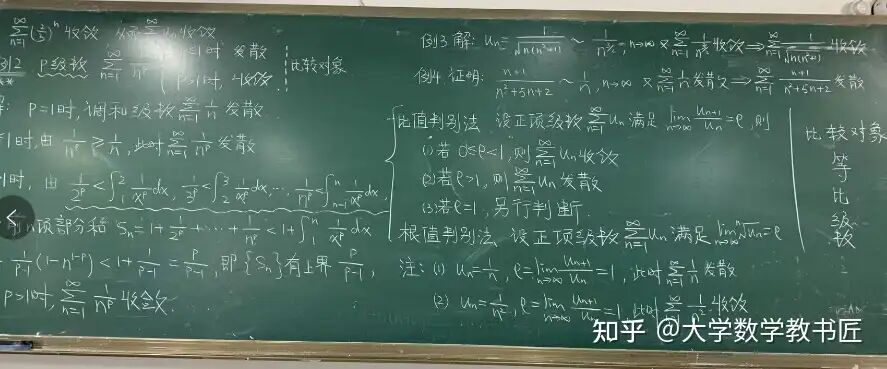 ∑_{n=1}^∞ (2/3)^n 收敛 ∑_{n=1}^∞ u_n 收敛
例2 p级数 ∑_{n=1}^∞ 1/n^p p≤1时 发散
p>1时, 收敛. 比较对象
解: p=1时, 调和级数 ∑_{n=1}^∞ 1/n 发散.
1时, 由 1/n^p ≥ 1/n, 此时 ∑_{n=1}^∞ 1/n^p 发散
1时, 由 1/2^p < ∫_1^2 1/x^p dx, 1/3^p < ∫_2^3 1/x^p dx, …, 1/n^p < ∫_{n-1}^n 1/x^p dx,
前n项部分和 S_n = 1 + 1/2^p + … + 1/n^p < 1 + ∫_1^n 1/x^p dx
1/(p-1) (1-n^{1-p}) < 1 + 1/(p-1) = p/(p-1), 即{S_n}有上界 p/(p-1),
p>1时, ∑_{n=1}^∞ 1/n^p 收敛.
例3 解: u_n = 1/√(n(n²+1)) ~ 1/n^{3/2}, n→∞ 又 ∑_{n=1}^∞ 1/n^{3/2} 收敛 ⇒ ∑_{n=1}^∞ 1/√(n(n²+1)) 收敛
例4. 证明: (n+1)/(n²+5n+2) ~ 1/n, n→∞ 又 ∑_{n=1}^∞ 1/n 发散 ⇒ ∑_{n=1}^∞ (n+1)/(n²+5n+2) 发散
比值判别法 设正项级数 ∑_{n=1}^∞ u_n 满足 lim_{n→∞} u_{n+1}/u_n = ρ, 则
(1) 若 0≤ρ<1, 则 ∑_{n=1}^∞ u_n 收敛
(2) 若 ρ>1, 则 ∑_{n=1}^∞ u_n 发散
(3) 若 ρ=1, 另行判断.
根值判别法 设正项级数 ∑_{n=1}^∞ u_n 满足 lim_{n→∞} ⁿ√u_n = ρ
注: (1) u_n = 1/n, ρ = lim_{n→∞} u_{n+1}/u_n = 1, 此时 ∑_{n=1}^∞ 1/n 发散
(2) u_n = 1/n², ρ = lim_{n→∞} u_{n+1}/u_n = 1, 此时 ∑_{n=1}^∞ 1/n² 收敛
比较对象
等
比
级
数
知乎 @大学数学教书匠